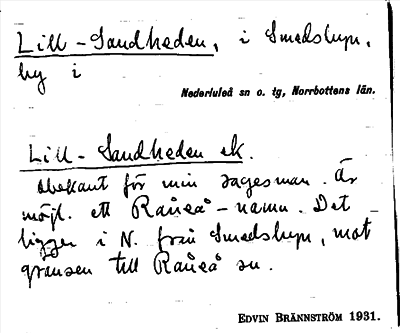 Lill-Sandheden, i Smedsbyn,
by i
Nederluleå sn o. tg, Norrbottens län.
Lill-Sandheden ek.
obekant för min sagesman. Är
möjl. ett Råneå-namn. Det
ligger i N. från Smedsbyn, mot
gränsen till Råneå sn.
EDVIN BRÄNNSTRÖM 1931.